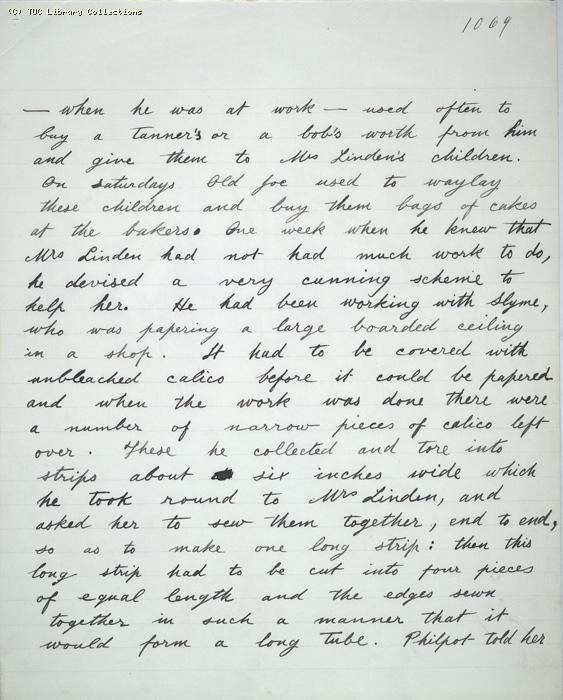 (C) TUC Library Collections
1069
— when he was at work — used often to
buy a tanner's or a bob's worth from him
and give them to Mrs Linden's children.
On Saturdays Old Joe used to waylay
these children and buy them bags of cakes
at the bakers. One week when he knew that
Mrs Linden had not had much work to do,
he devised a very cunning scheme to
help her. He had been working with Slyme,
who was papering a large boarded ceiling
in a shop. It had to be covered with
unbleached calico before it could be papered
and when the work was done there were
a number of narrow pieces of calico left
over. These he collected and tore into
strips about six inches wide which
he took round to Mrs Linden, and
asked her to sew them together, end to end,
so as to make one long strip: then this
long strip had to be cut into four pieces
of equal length and the edges sewn
together in such a manner that it
would form a long tube. Philpot told her